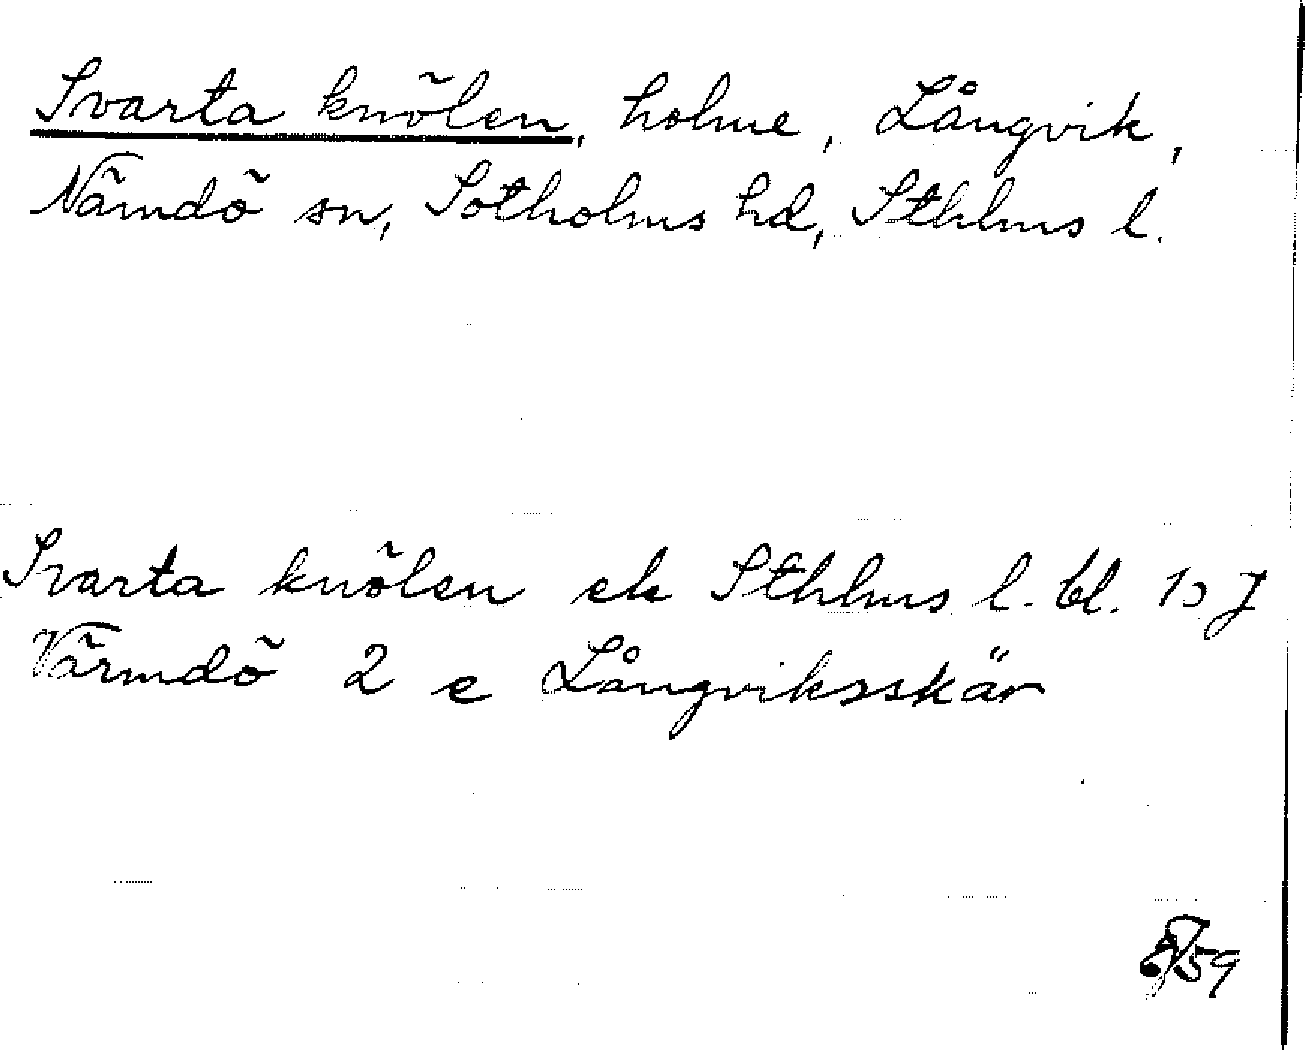 Svarta knölen, holme, Långvik,
Nämdö sn, Sotholms hd, Sthlms l.
Svarta knölen ek Sthlms l. bl. 10 J
Värmdö 2 e Långviksskär
/59